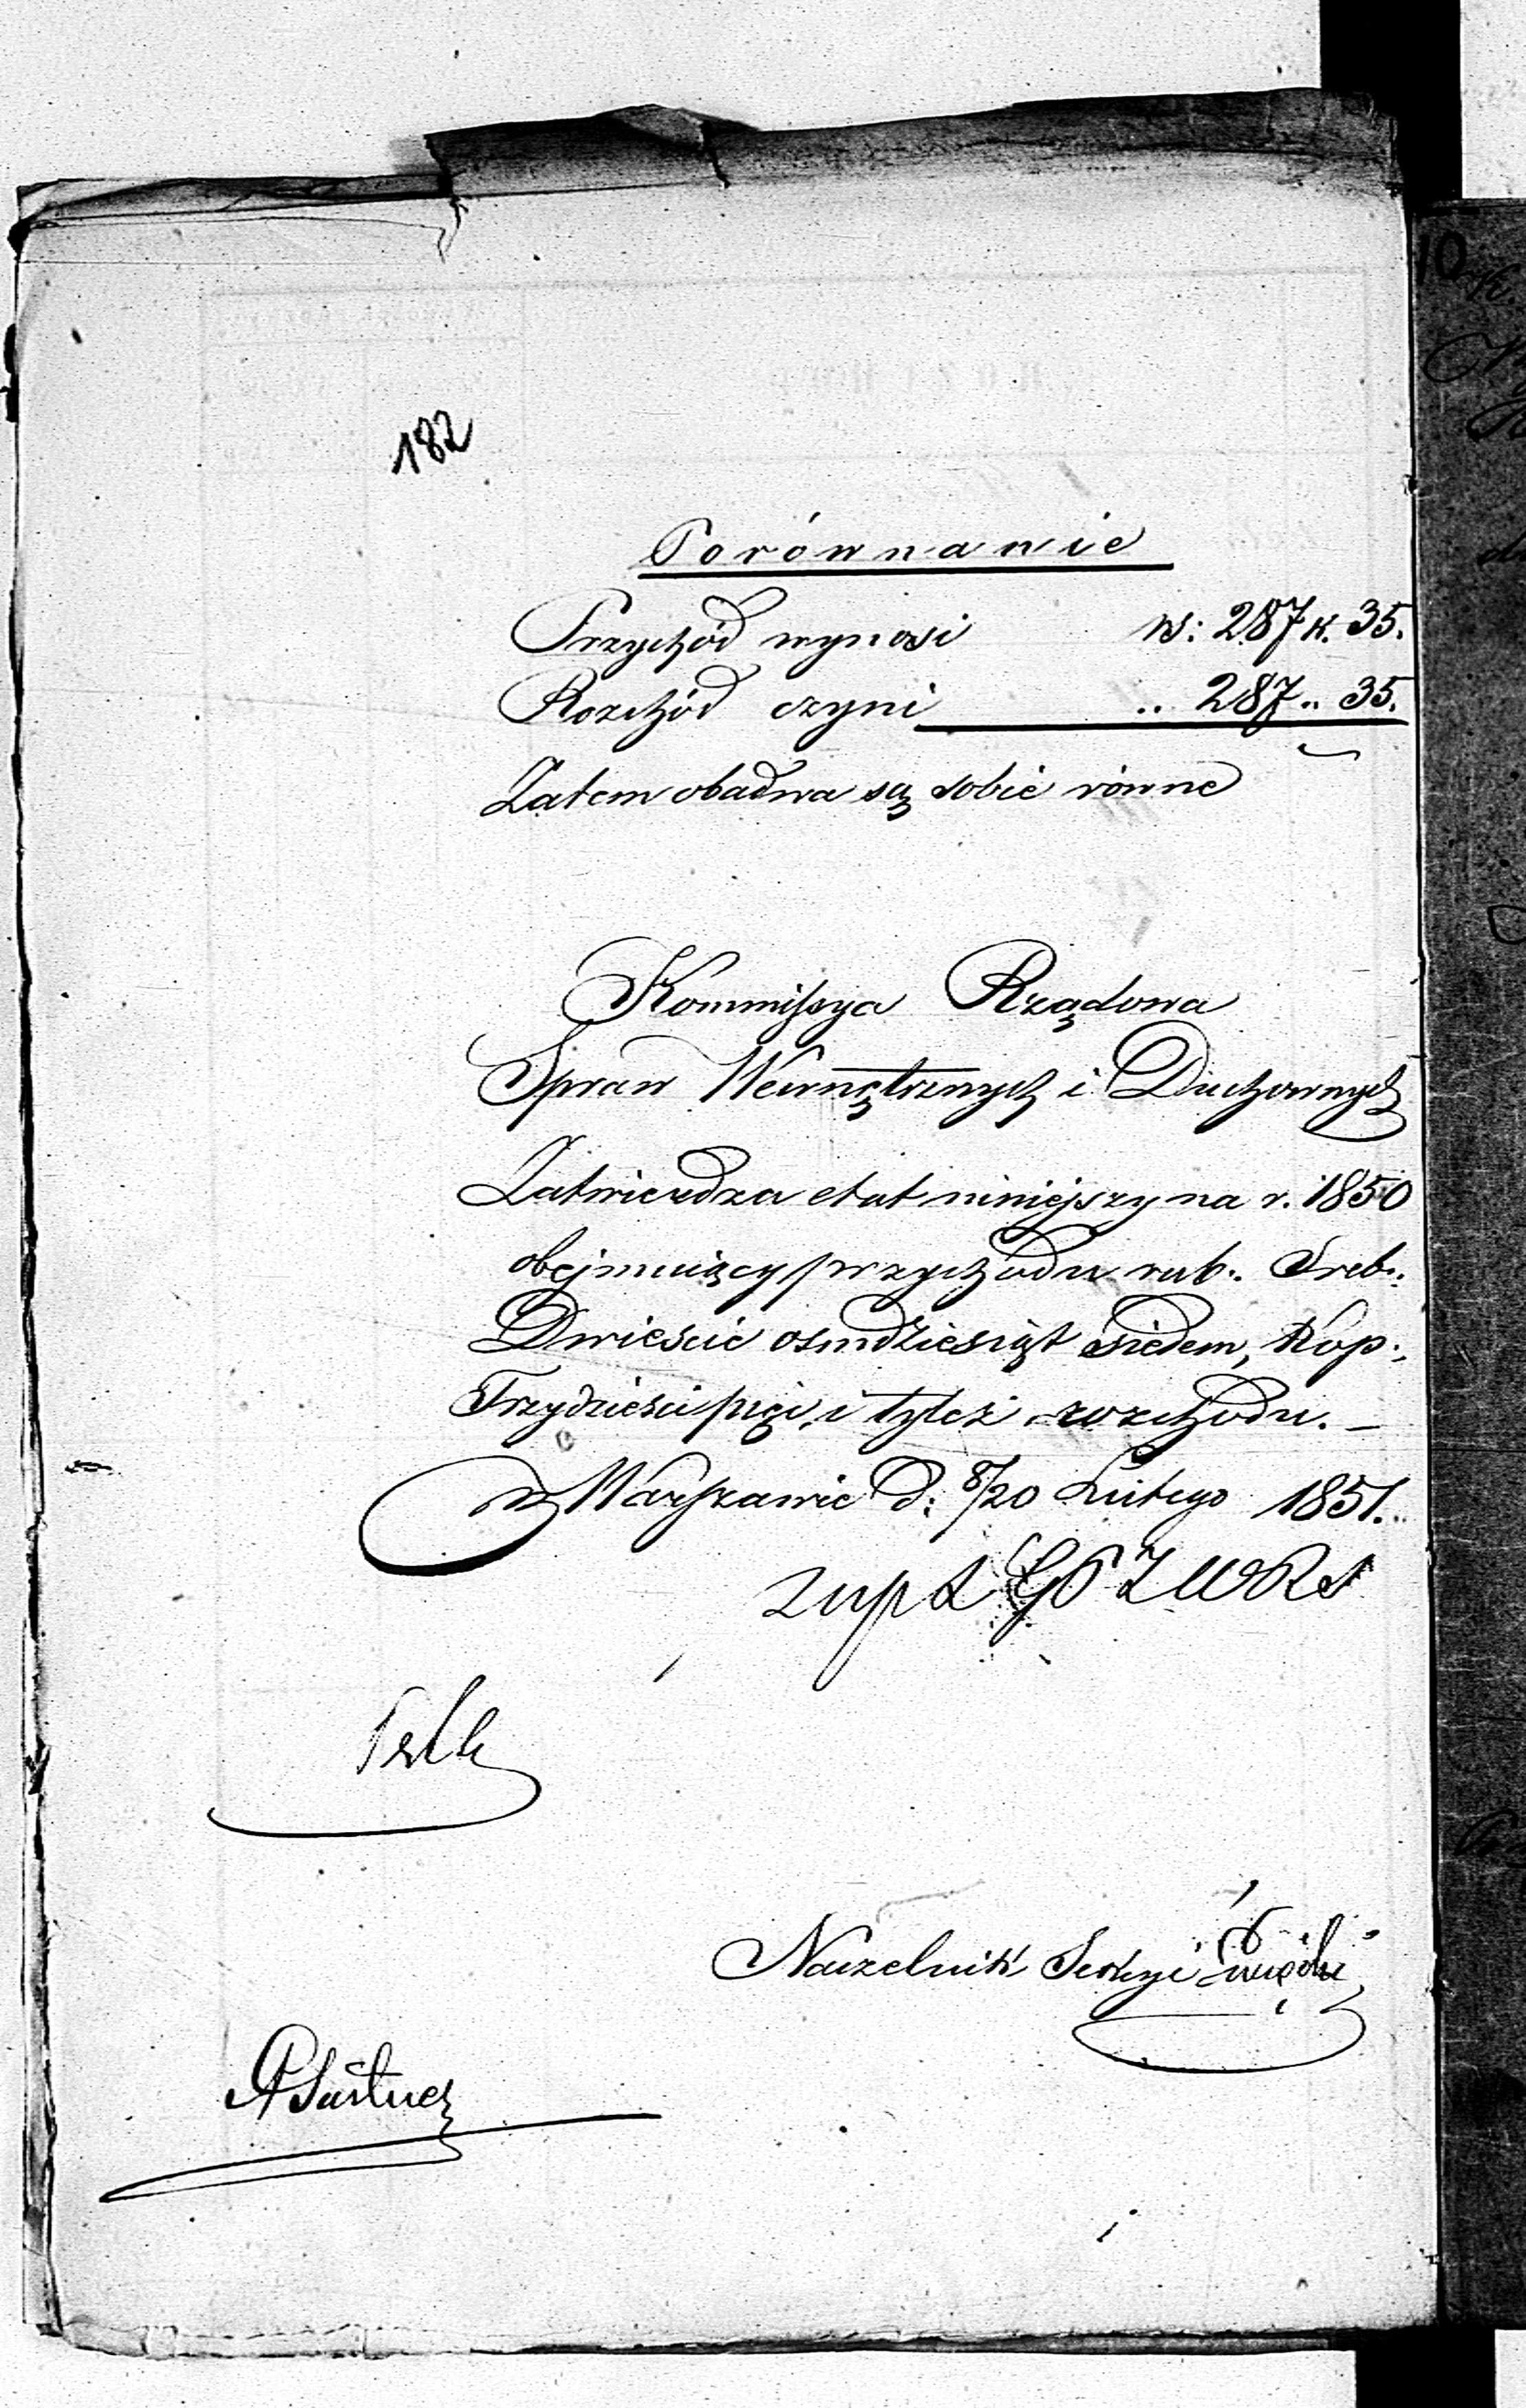 182
Porównanie
Przychód wynosi rs: 287 k. 35.
Rozchód czyni „ 287 „ 35.
Zatem obadwa są sobie równe
Kommissya Rządowa
Spraw Wewnętrznych i Duchownych
Zatwierdza etat niniejszy na r. 1850
obejmujący przychodu rub: Sreb:
Dwieście ośmdziesiąt siedem, Kop:
Trzydzieści pięć, i tyleż rozchodu. —
w Warszawie d: 8/20 Lutego 1851.
Naczelnik Sekcyi